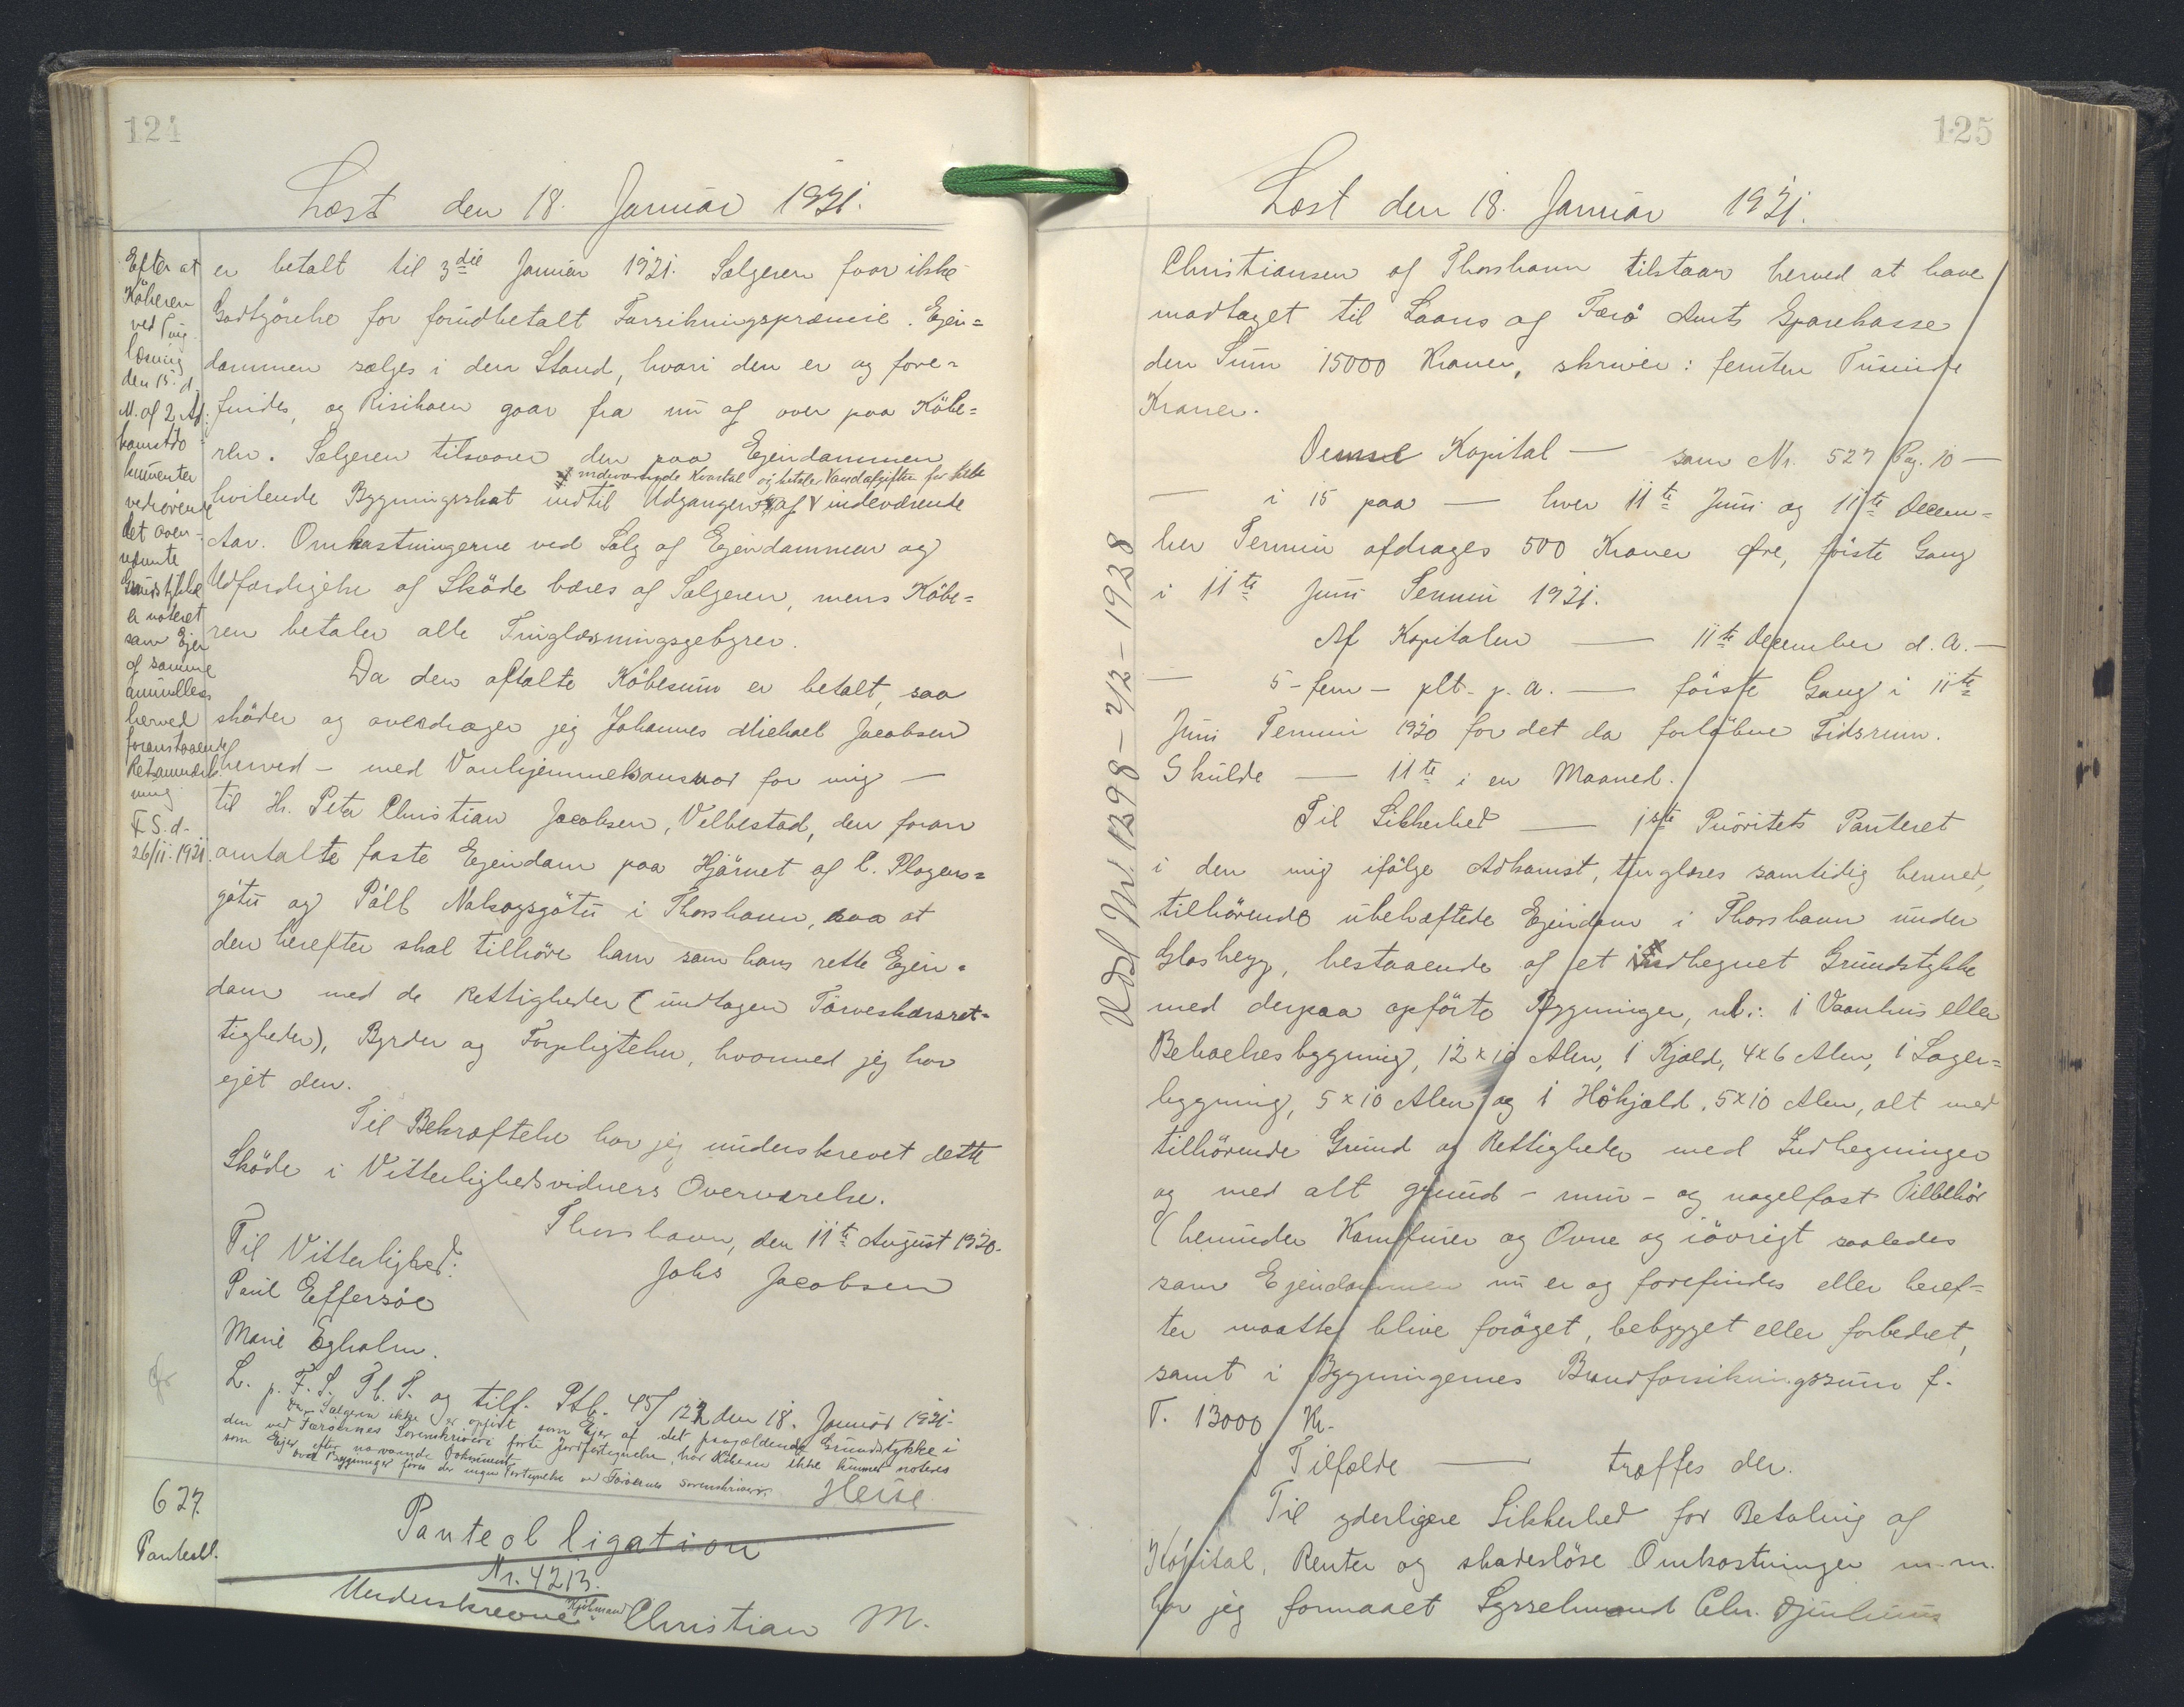 124
Læst den 18. Januar 1921.
Efter at
Köberen
ved Ting-
læsning
den 15. d.
M. af 2 Ad-
komstdo-
kumenter
vedrörende
det oven-
nævnte
Grundstykke
er noteret
som Ejer
af samme
annulleres
herved
foranstaaende
Retsanmærk-
ning
F. S. d.
26/11. 1921.
er betalt til 3die Januar 1921. Sælgeren faar ikke
Godtgörelse for forudbetalt Forsikringspræmie. Ejen=
dommen sælges i den Stand, hvori den er og fore=
findes, og Risikoen gaar fra nu af over paa Köbe=
ren. Sælgeren tilsvarer den paa Ejendommen
indeværende Kvartal og betaler Vandafgiften for hele
hvilende Bygningsskat indtil Udgangen af indeværende
Aar. Omkostningerne ved Salg af Ejendommen og
Udfærdigelse af Sköde bæres af Sælgeren, mens Köbe=
ren betaler alle Tinglæsningsgebyrer.
Da den aftalte Köbesum er betalt, saa
sköder og overdrager jeg Johannes Michael Jacobsen
herved – med Vanhjemmelsansvar for mig –
til Hr. Peter Christian Jacobsen, Velbestad, den foran
omtalte faste Ejendom paa Hjörnet af C. Plogens=
götu og Páll Nolsoysgötu i Thorshavn, saa at
den herefter skal tilhöre ham som hans rette Ejen=
dom med de Rettigheder (undtagen Törveskærsret=
tigheder), Byrder og Forpligtelser, hvormed jeg har
ejet den.
Til Bekræftelse har jeg underskrevet dette
Sköde i Vitterlighedsvidners Overværelse.
Thorshavn, den 11te August 1920.
Til Vitterlighed: Johs Jacobsen
Paul Effersöe
Marie Egholm.
L. p. F. S. Tb. S. og tilf. Ptb. 45/122 den 18. Januar 1921.
Da Sælgeren ikke er opfört som Ejer af det paagældende Grundstykke i
den ved Færöernes Sorenskriveri förte Jordfortegnelse, har Köberen ikke kunnet noteres
som Ejer efter nærværende Dokument.
Over Bygninger föres der ingen Fortegnelse ved Færöernes Sorenskriveri.
Heise
627.
Panteobl.
Panteobligation
Nr. 4213.
Underskrevne Kjöbmand Christian M.
125
Læst den 18. Januar 1921.
Udsl. Nr. 1298 – 2/2 – 1928
Christiansen af Thorshavn tilstaar herved at have
modtaget til Laans af Færö Amts Sparekasse
den Sum 15000 Kroner, skriver: femten Tusinde
Kroner.
Denne Kapital — som Nr. 527 Pag. 10 —
— i 15 paa — hver 11te Juni og 11te Decem=
ber Termin afdrages 500 Kroner Øre, förste Gang
i 11te Juni Termin 1921.
Af Kapitalen — 11te December d. A. —
— 5 – fem – pCt. p. a. — förste Gang i 11te
Juni Termin 1920 for det da forlöbne Tidsrum.
Skulde — 11te i en Maaned.
Til Sikkerhed — 1ste Prioritets Panteret
i den mig ifölge Adkomst, tinglæses samtidig hermed,
tilhörende ubehæftede Ejendom i Thorshavn under
Glashegg, bestaaende af et indhegnet Grundstykke
med derpaa opförte Bygninger, nl.: 1 Vaanhus eller
Beboelsesbygning, 12 x 10 Alen, 1 Kjald, 4x6 Alen, 1 Lager=
bygning, 5 x 10 Alen og 1 Höhjald, 5x10 Alen, alt med
tilhörende Grund og Rettigheder med Indhegninger
og med alt grund- mur- og nagelfast Tilbehör
(herunder Komfurer og Ovne og iövrigt saaledes
som Ejendommen nu er og forefindes eller heref=
ter maatte blive foröget, bebygget eller forbedret,
samt i Bygningernes Brandforsikringssum f.
T. 13000 Kr.
I Tilfælde — træffes der.
Til yderligere Sikkerhed for Betaling af
Kapital, Renter og skadeslöse Omkostninger m. m.
har jeg formaaet Sysselmand Chr. Djurhuus